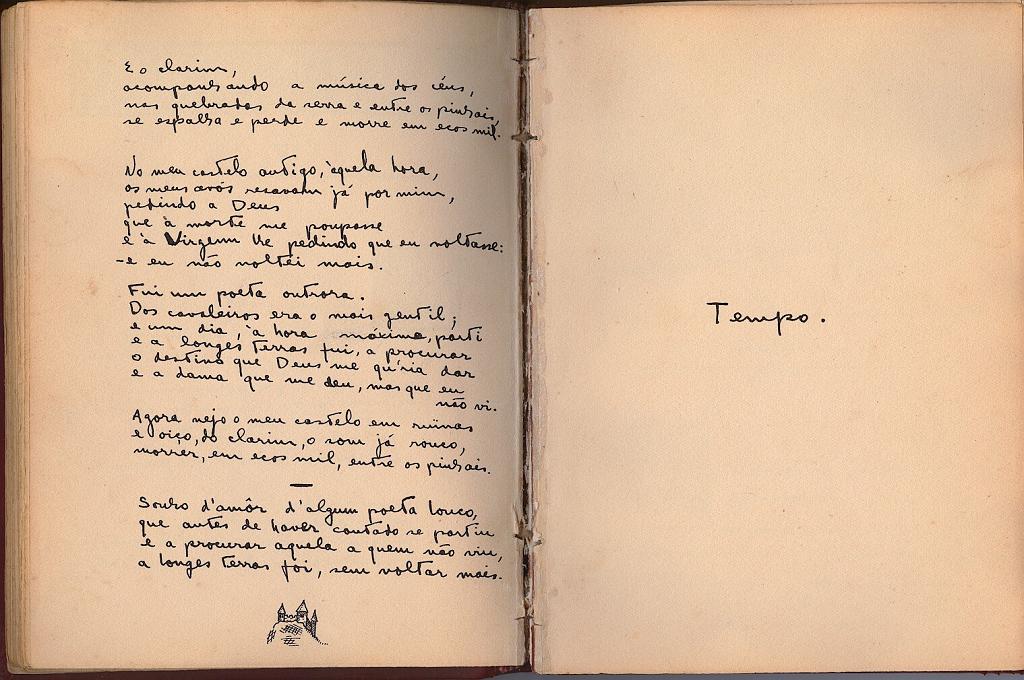 E o clarim,
acompanhando a música dos céus,
nas quebradas da serra e entre os pinhais,
se espalha e perde e morre em ecos mil.
No meu castelo antigo, àquela hora,
os meus avós resavam já por mim,
pedindo a Deus
que à morte me poupasse
e à Virgem lhe pedindo que eu voltasse:
- e eu não voltei mais.
Fui um poeta outrora.
Dos cavaleiros era o mais gentil;
e um dia, à hora máxima, parti
e a longes terras fui, a procurar
o destino que Deus me qu'ria dar
e a dama que me deu, mas que eu
não vi.
Agora vejo o meu castelo em ruínas
e oiço, do clarim, o som já rouco,
morrer, em ecos mil, entre os pinhais.
—
Sonho d'amôr d'algum poeta louco,
que antes de haver cantado se partiu
e a procurar aquela a quem não viu,
a longes terras foi, sem voltar mais.
Tempo.